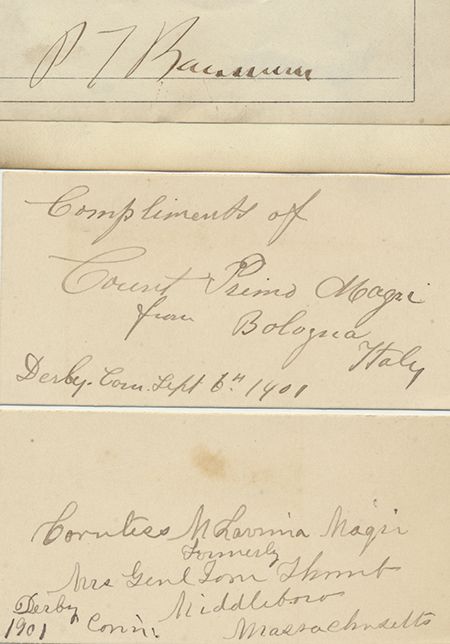 P T Barnum
Compliments of
Count Primo Magri
from Bologna
Italy
Derby. Conn. Sept 6th 1901
Countess M Lavinia Magri
Formerly
Mrs Genl Tom Thumb
Middleboro
Massachusetts
Derby
1901 Conn.